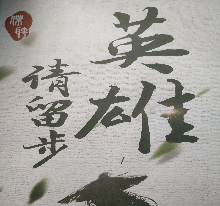 英雄
请留步